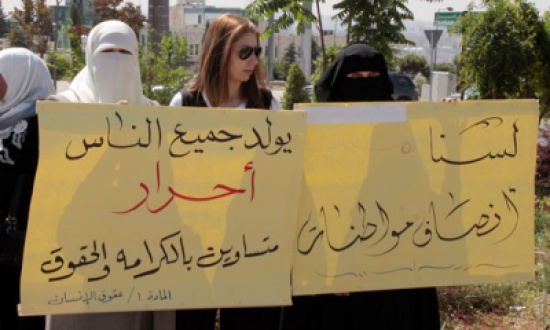 لسنا
أنصاف مواطنات
يولد جميع الناس
أحرار
متساوين بالكرامه والحقوق
المادة ١/ حقوق الإنسان